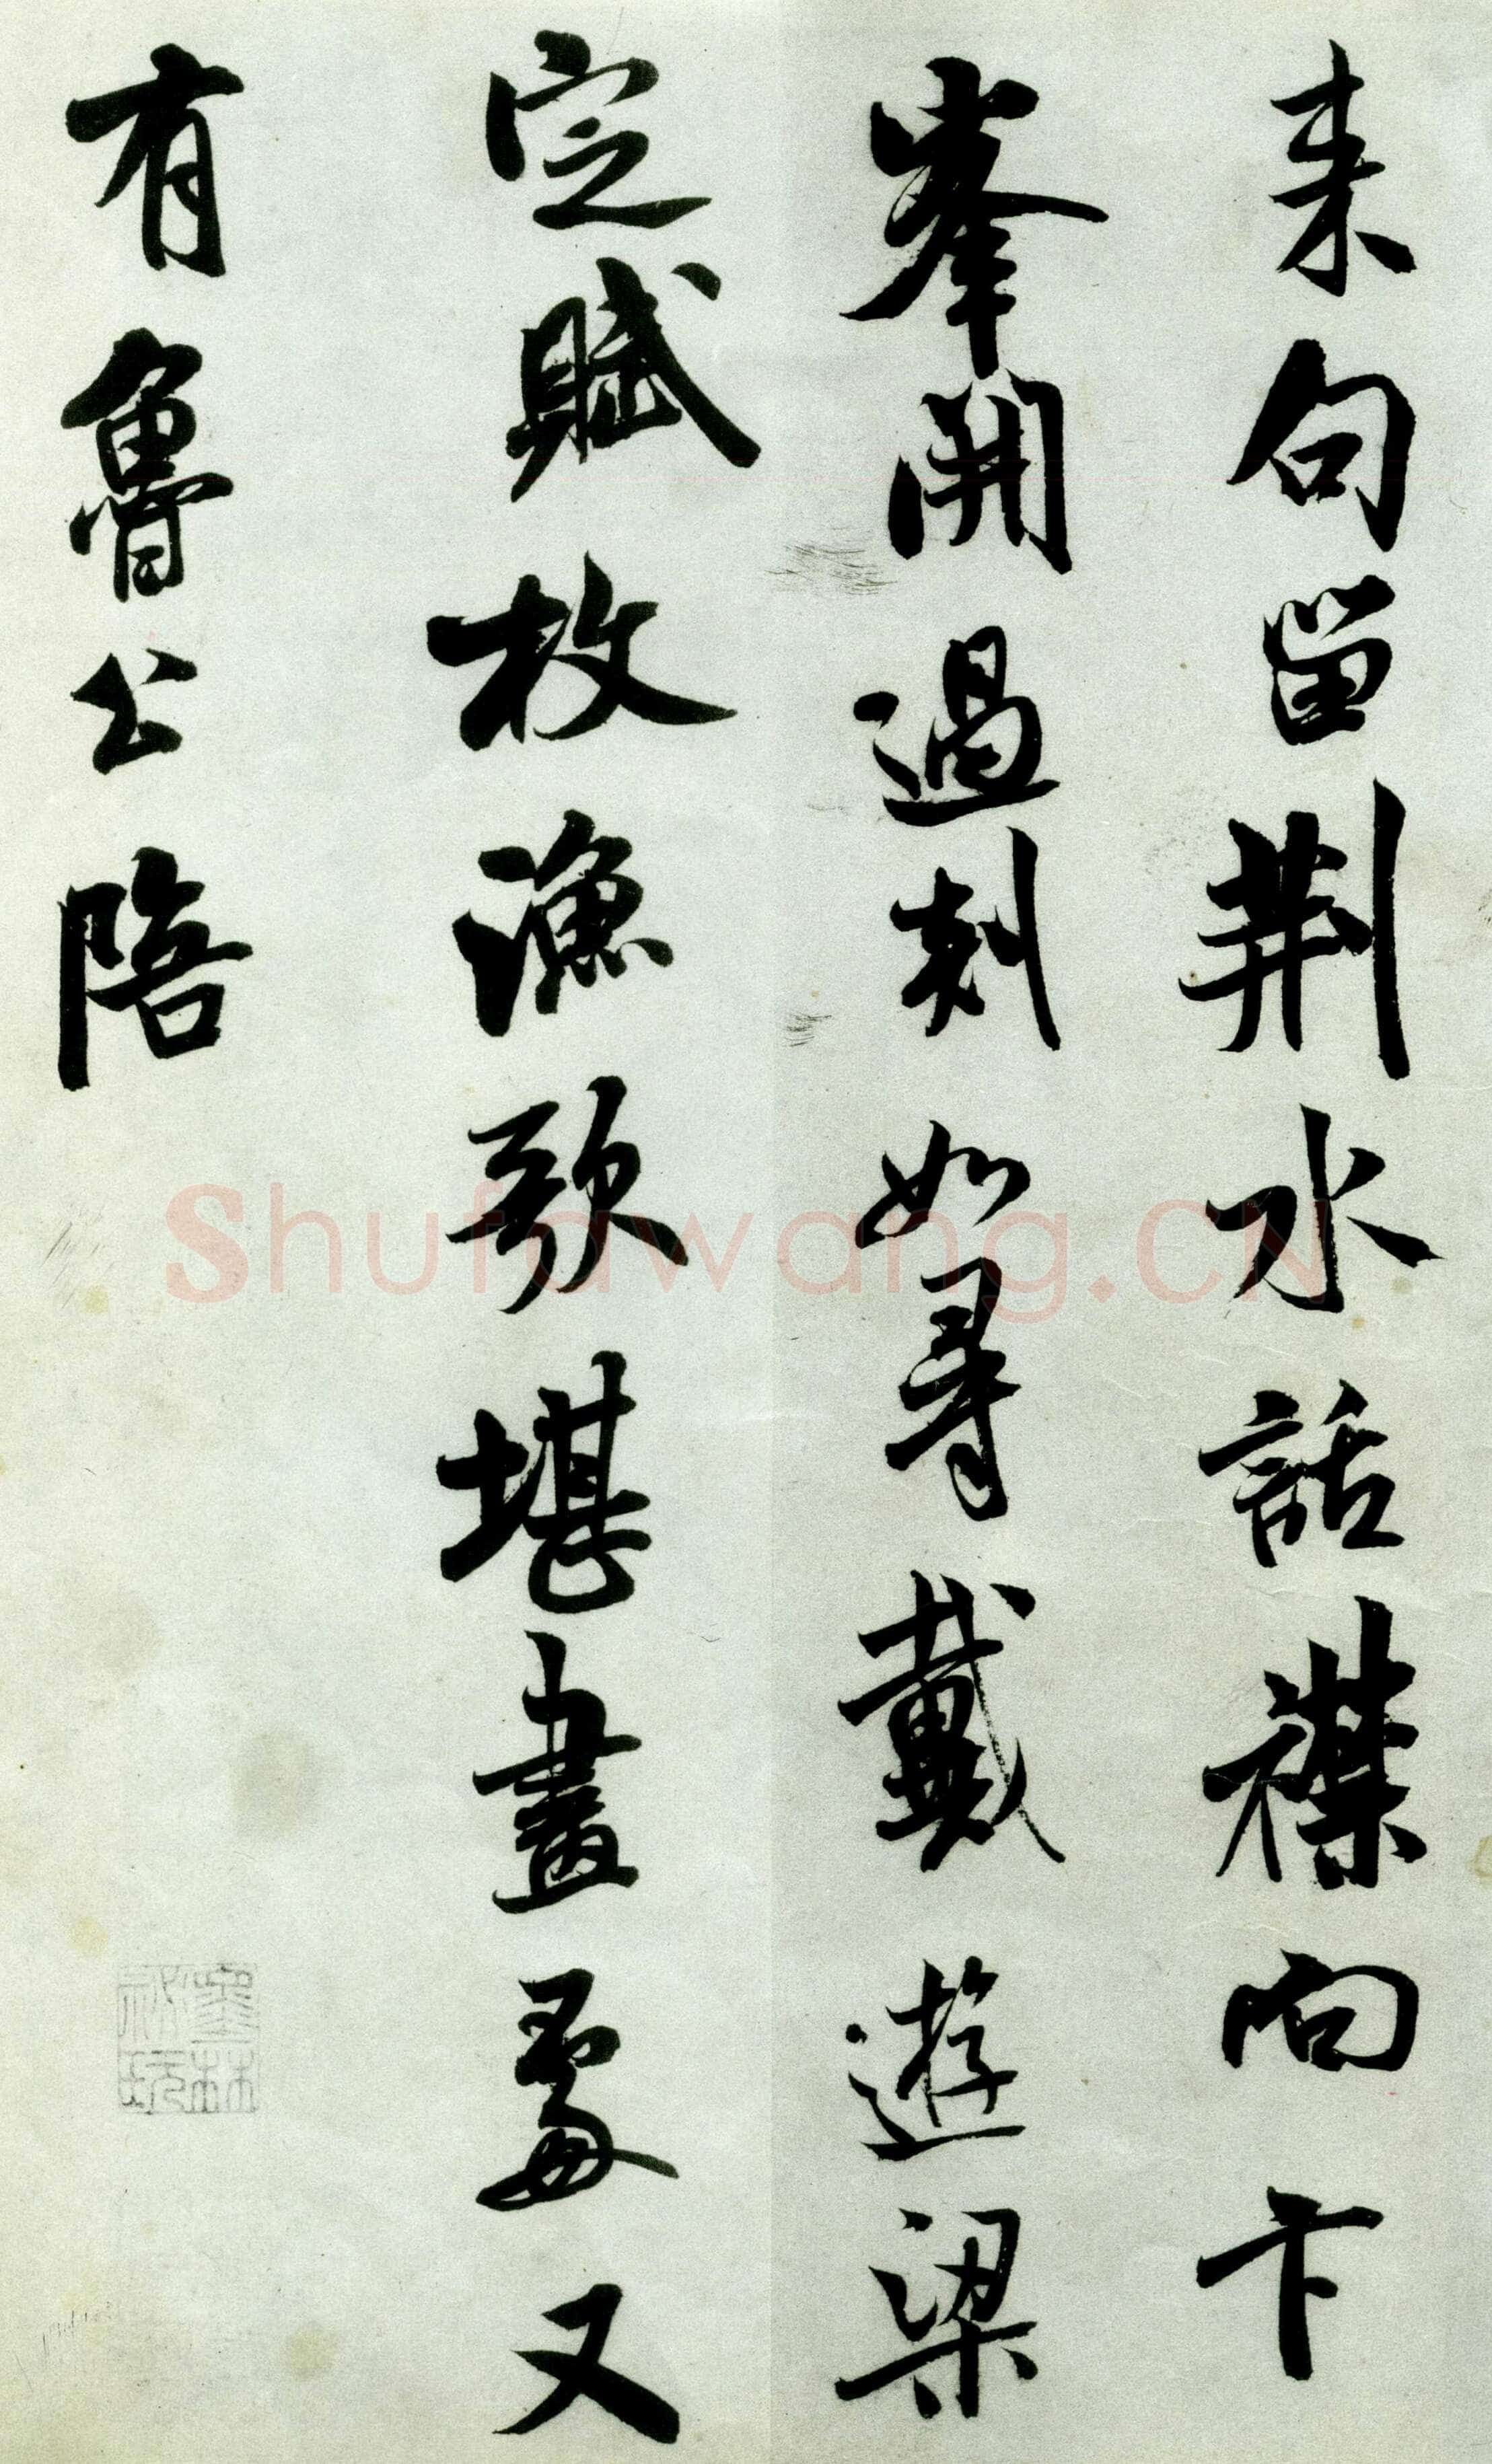 来句留荆水話襟向卞
峯開過剡如尋戴遊梁
定賦枚漁歌堪畫處又
有魯公陪
墨林
祕玩
Shufawang.CN